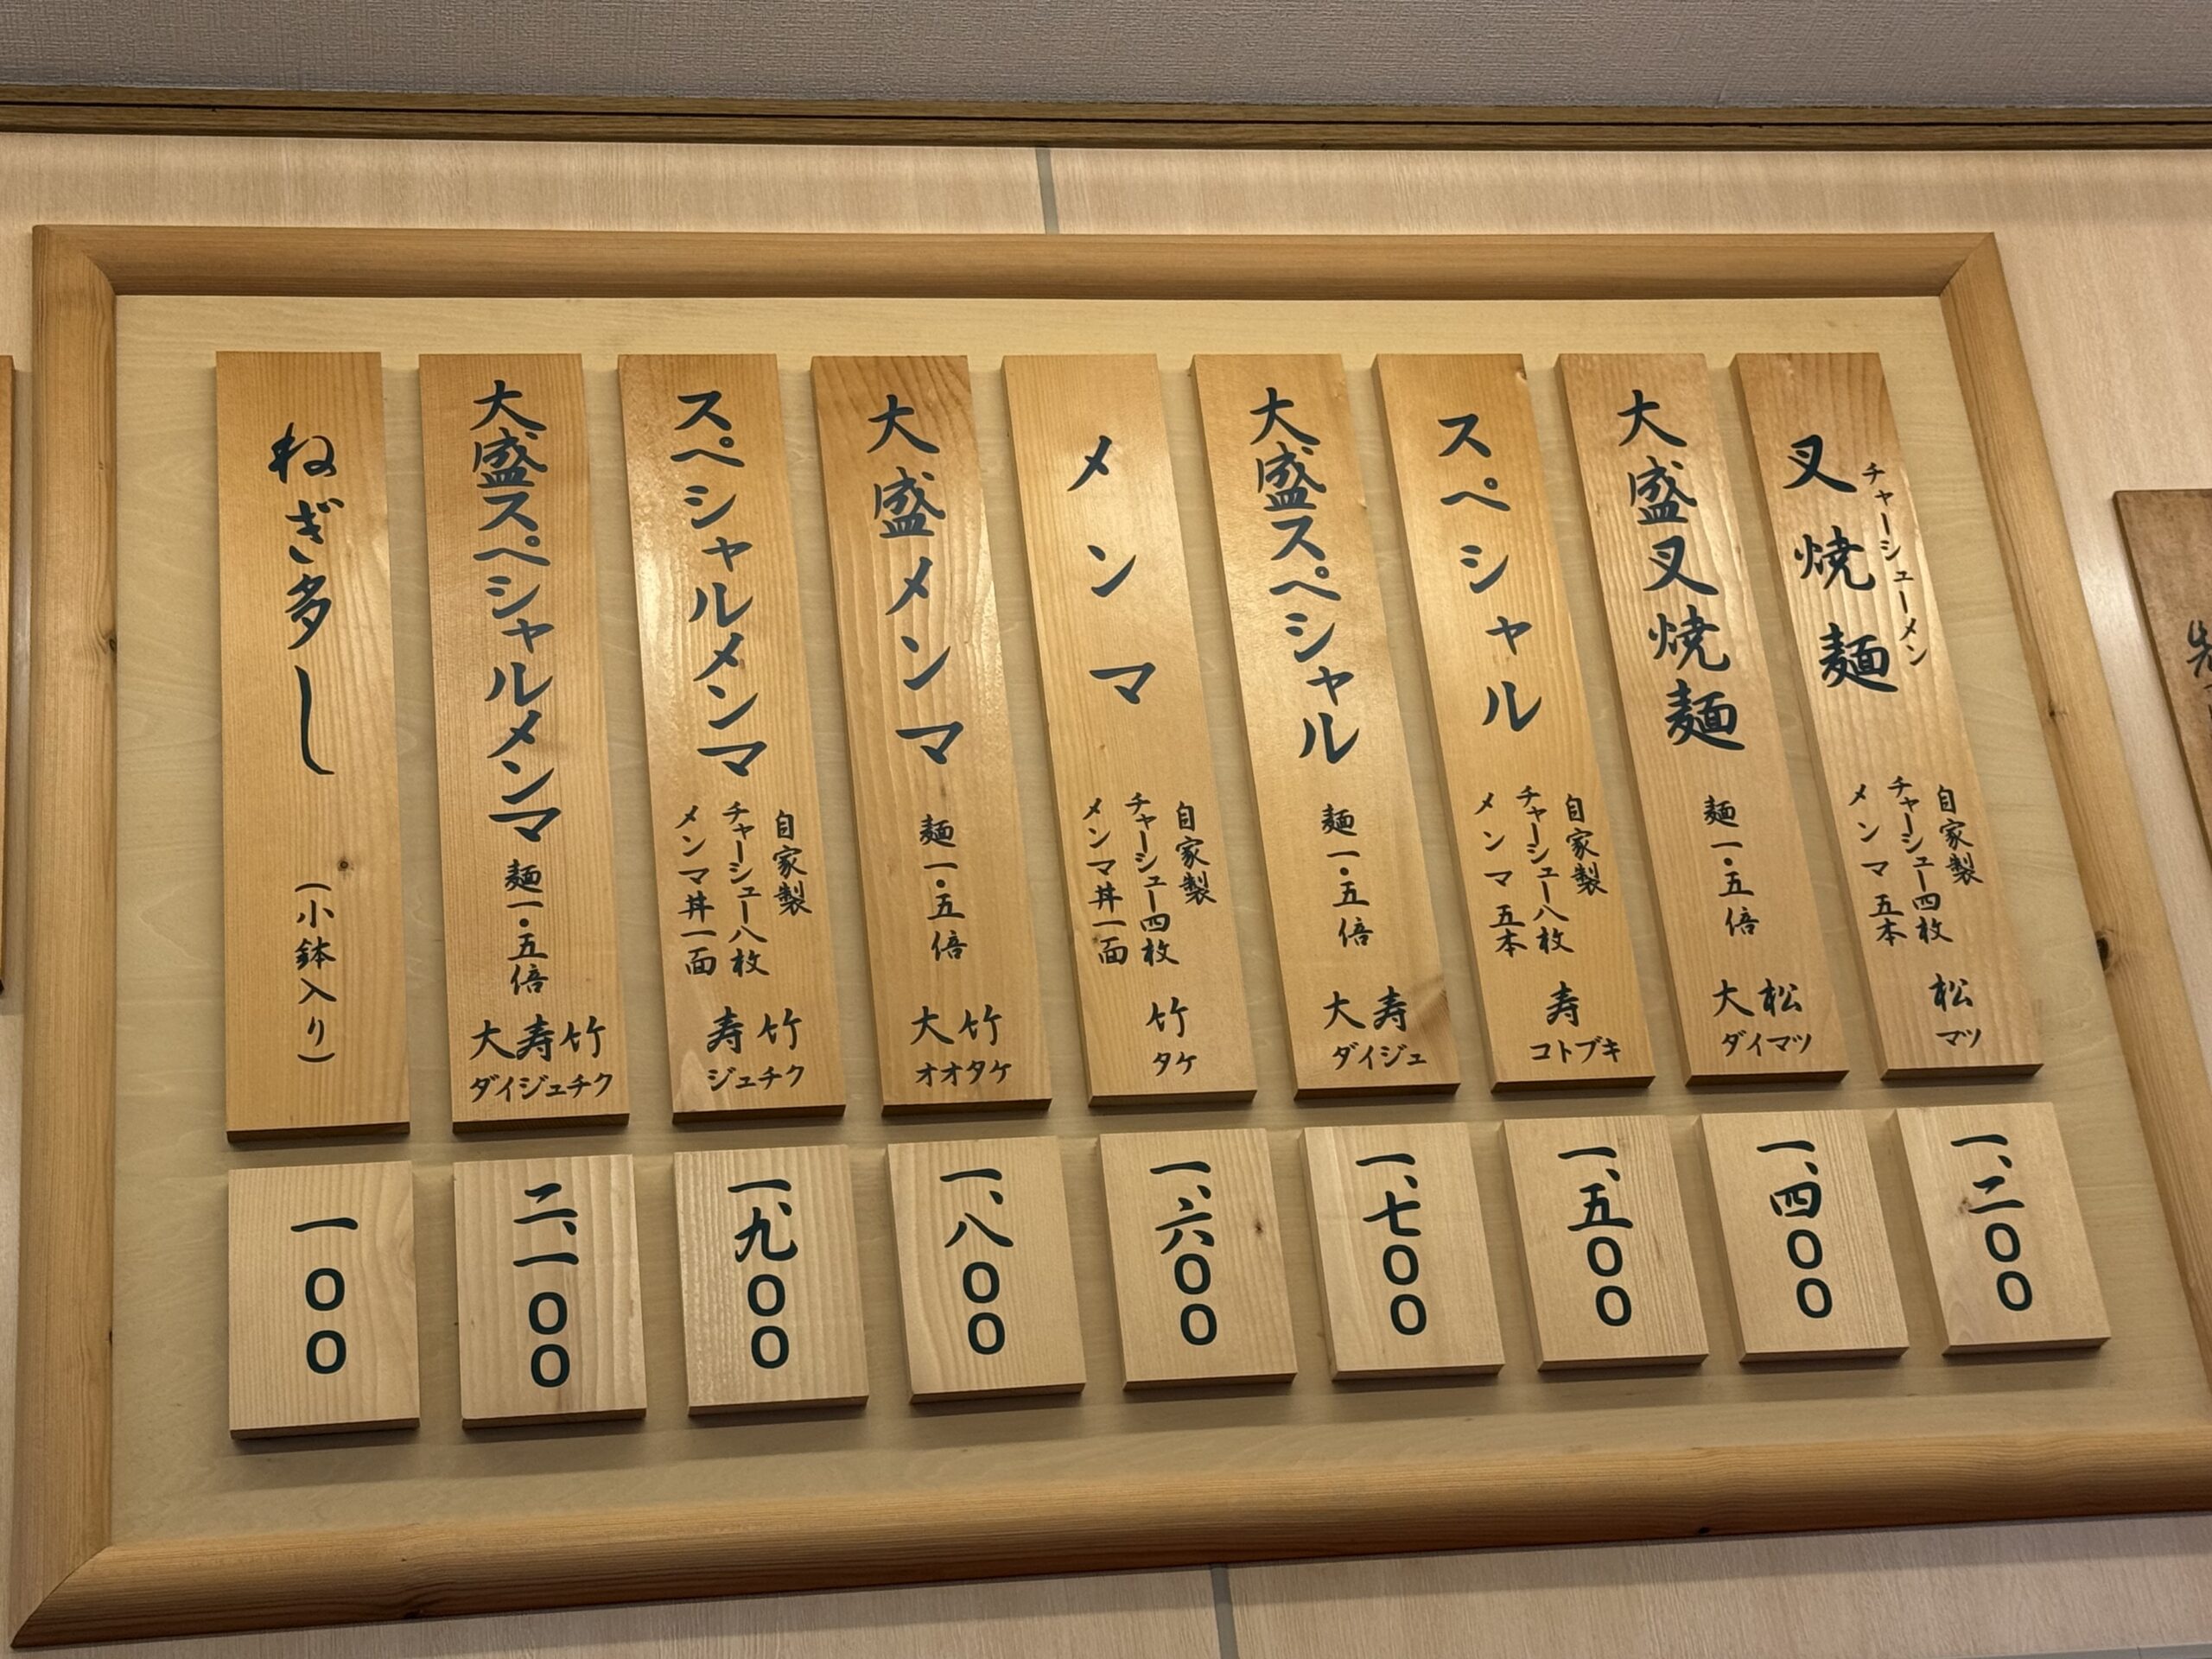 叉焼麺
チャーシューメン
自家製
チャーシュー四枚
メンマ五本
松
マツ
一、二〇〇
大盛叉焼麺
麺一・五倍
大松
ダイマツ
一、四〇〇
スペシャル
自家製
チャーシュー八枚
メンマ五本
寿
コトブキ
一、五〇〇
大盛スペシャル
麺一・五倍
大寿
ダイジュ
一、七〇〇
メンマ
自家製
チャーシュー四枚
メンマ丼一面
竹
タケ
一、六〇〇
大盛メンマ
麺一・五倍
大竹
オオタケ
一、八〇〇
スペシャルメンマ
自家製
チャーシュー八枚
メンマ丼一面
寿竹
ジュチク
一、九〇〇
大盛スペシャルメンマ
麺一・五倍
大寿竹
ダイジュチク
二、一〇〇
ねぎ多し
（小鉢入り）
一〇〇